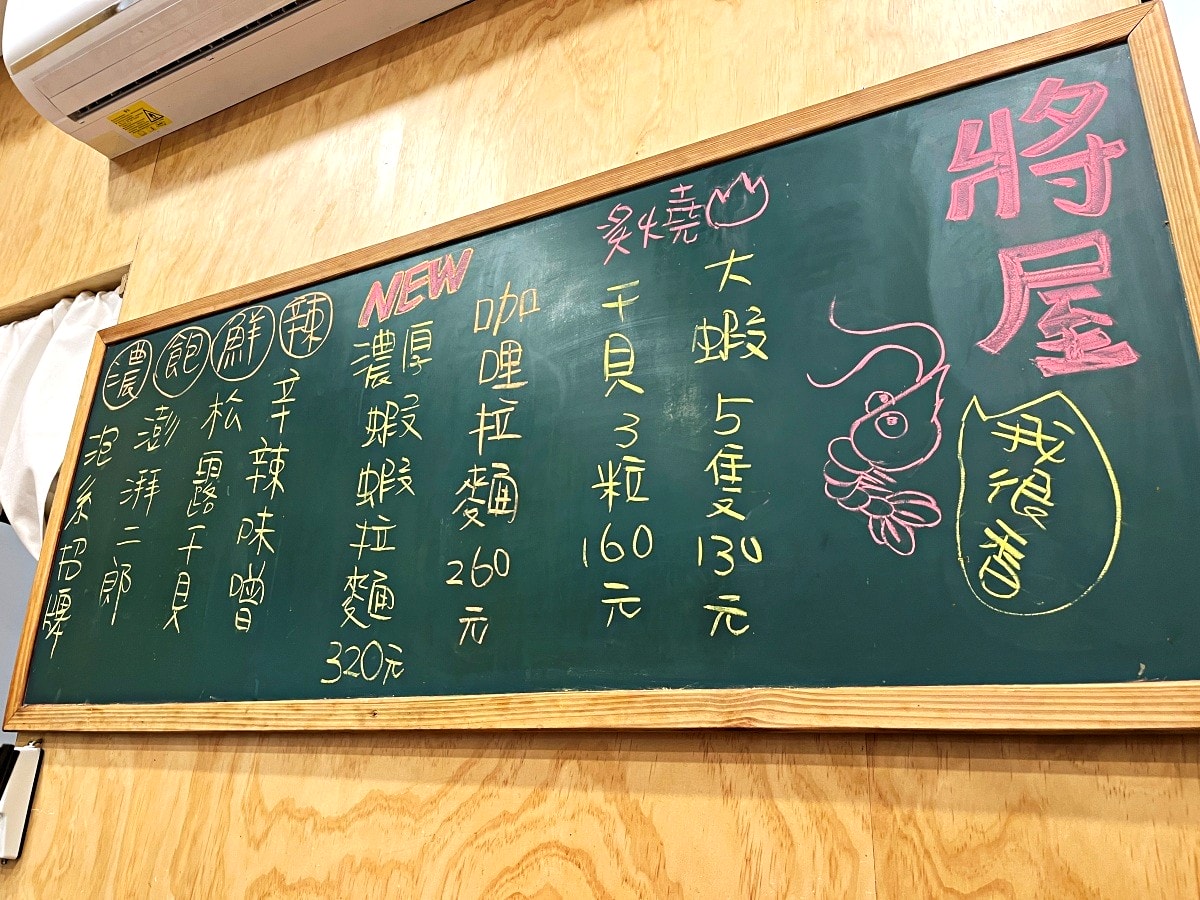 將屋
我很香
炙燒
大蝦5隻130元
干貝3粒160元
咖哩拉麵260元
NEW
濃厚蝦蝦拉麵320元
辣
辛辣味噌
鮮
松露干貝
飽
澎湃二郎
濃
泡系招牌